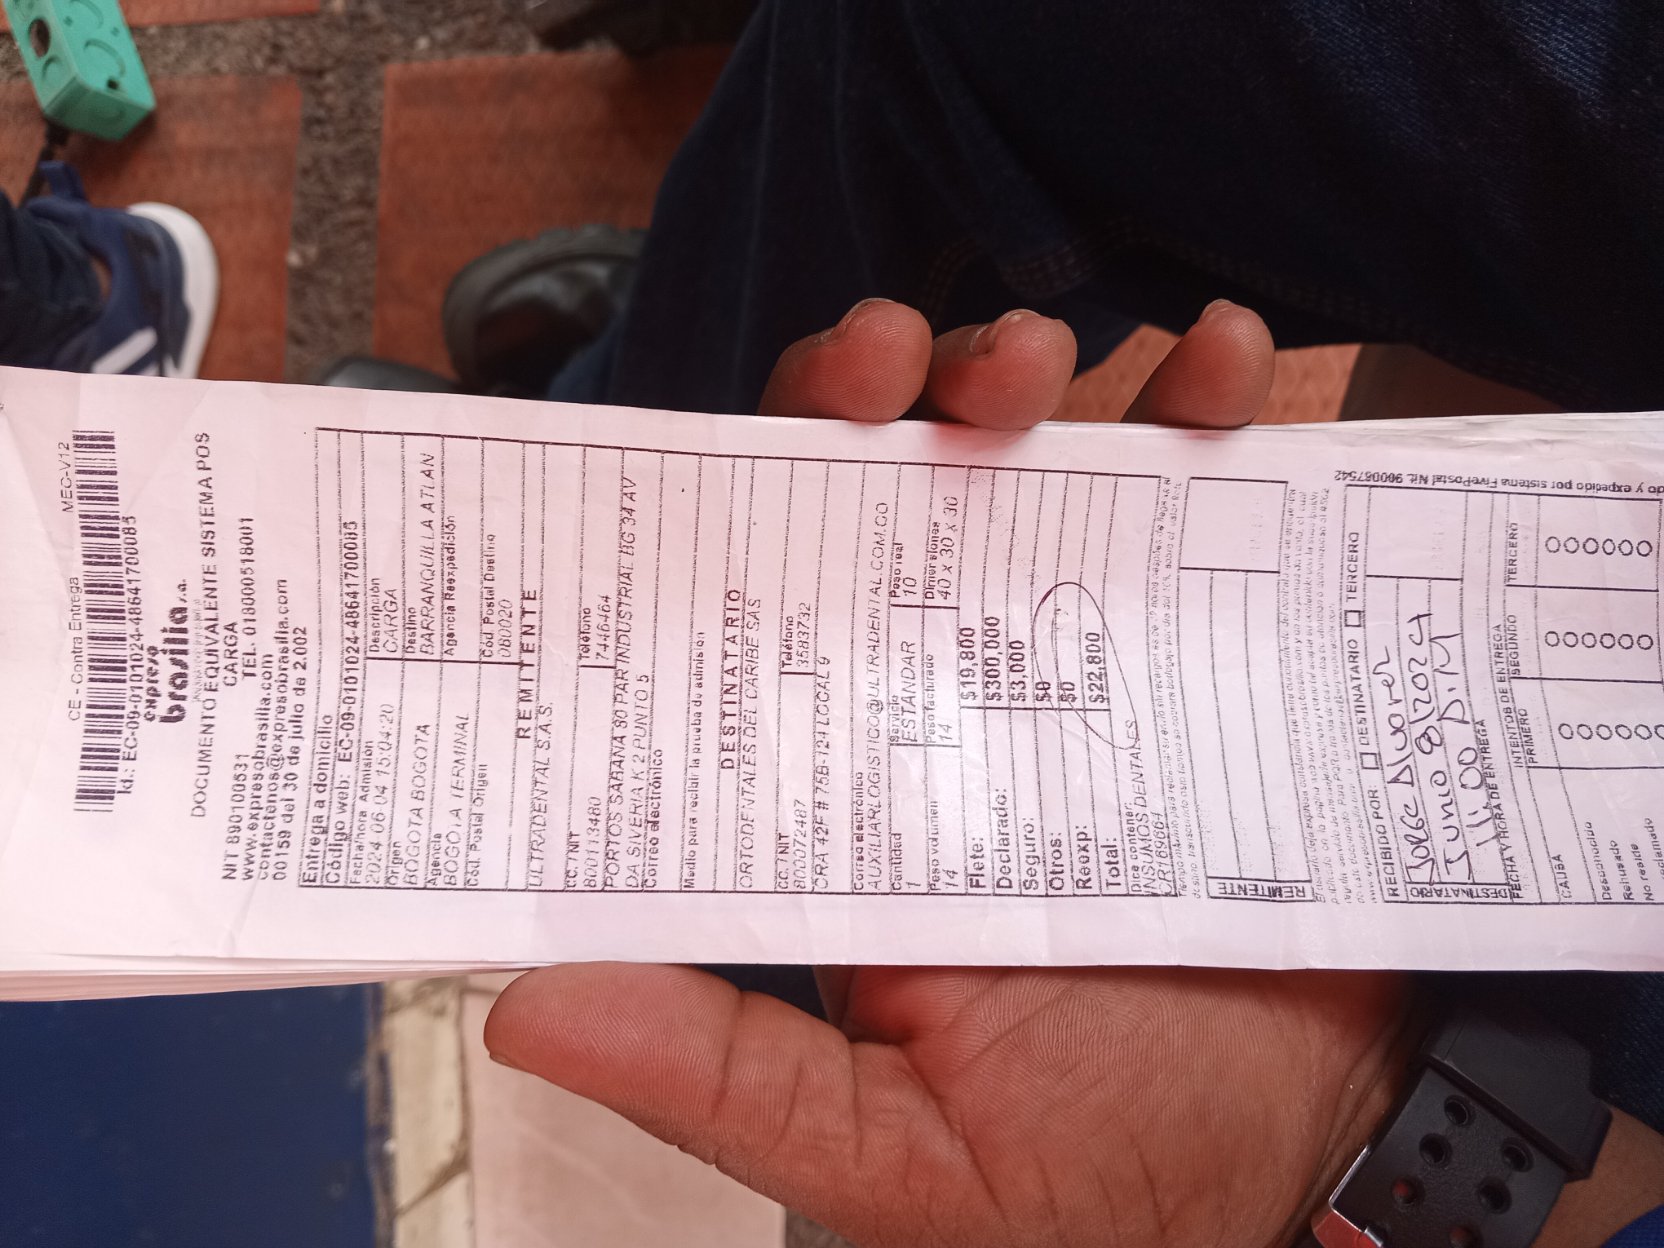 CE - Contra Entrega MEC-V12
Id.: EC-09-0101024-48641700085
expreso
brasilia s.a.
DOCUMENTO EQUIVALENTE SISTEMA POS
CARGA
NIT 890100531 TEL. 018000518001
www.expresobrasilia.com
contactenos@expresobrasilia.com
00159 del 30 de julio de 2.002
Entrega a domicilio
Código web: EC-09-0101024-48641700085
Fecha/hora Admisión Descripción
2024-06-04 15:04:20 CARGA
Origen Destino
BOGOTA BOGOTA BARRANQUILLA ATLAN
Agencia Agencia Reexpedición
BOGOTA TERMINAL
Cód. Postal Origen Cód. Postal Destino
080020
REMITENTE
ULTRADENTAL S.A.S.
CC. / NIT Teléfono
800113480 7446464
PORTOS SABANA 80 PAR INDUSTRIAL BG 34 AV
DA SIVERIA K 2 PUNTO 5
Correo electrónico
Medio para recibir la prueba de admisión
DESTINATARIO
ORTODENTALES DEL CARIBE SAS
CC. / NIT Teléfono
800072487 3583732
CRA 42F # 75B-124 LOCAL 9
Correo electrónico
AUXILIARLOGISTICO@ULTRADENTAL.COM.CO
Cantidad Servicio Peso real
1 ESTANDAR 10
Peso volumen Peso facturado Dimensiones
14 14 40 x 30 x 30
Flete: $19,800
Declarado: $300,000
Seguro: $3,000
Otros: $0
Reexp: $0
Total: $22,800
Dice contener:
INSUMOS DENTALES
REMITENTE
RECIBIDO POR: DESTINATARIO TERCERO
DESTINATARIO
Jorge Alvarez
Junio 8/2024
11:00 D.M
FECHA Y HORA DE ENTREGA
INTENTOS DE ENTREGA
CAUSA PRIMERO SEGUNDO TERCERO
Desconocido
Rehusado
No reside
do y expedido por sistema FivePostal Nit. 900087542